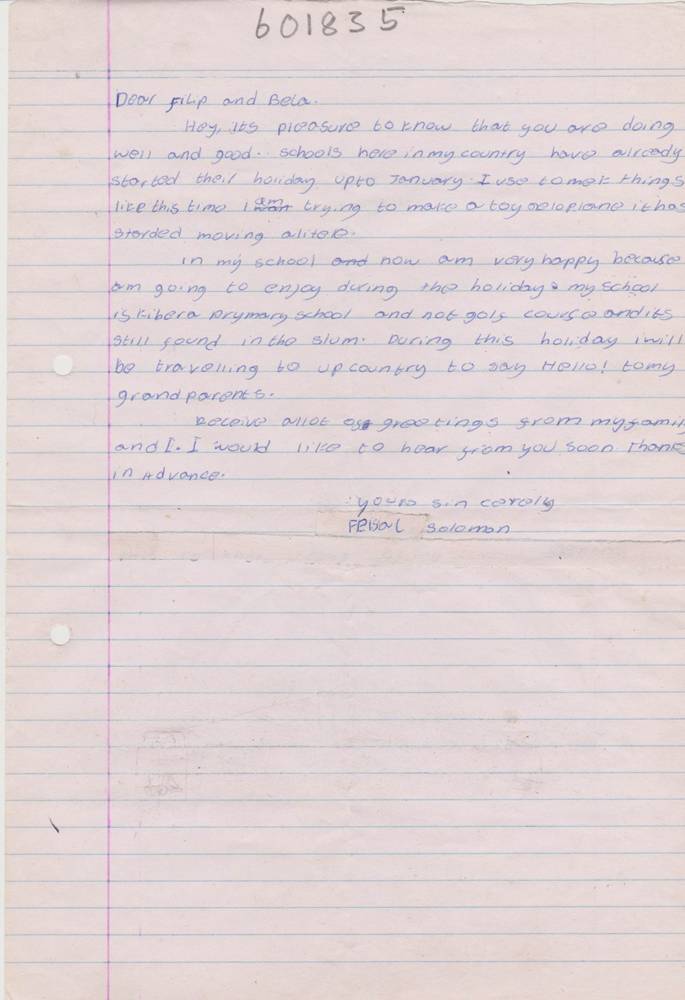 601835
Dear Filip and Bela.
Hey, its pleasure to know that you are doing
well and good. schools here in my country have already
started their holiday upto January. I use to mek things
like this time I am trying to make a toy aeloplane it has
starded moving alitele.
in my school and now am very happy because
am going to enjoy during the holiday. my school
is kibera prymary school and not golf course and its
still found in the slum. During this holiday i will
be travelling to upcountry to say Hello! to my
grandparents.
Receive allot of greetings from my famil
and I. I would like to hear from you soon Thanks
in Advance.
yours sin cerelly
FEISAL Solomon